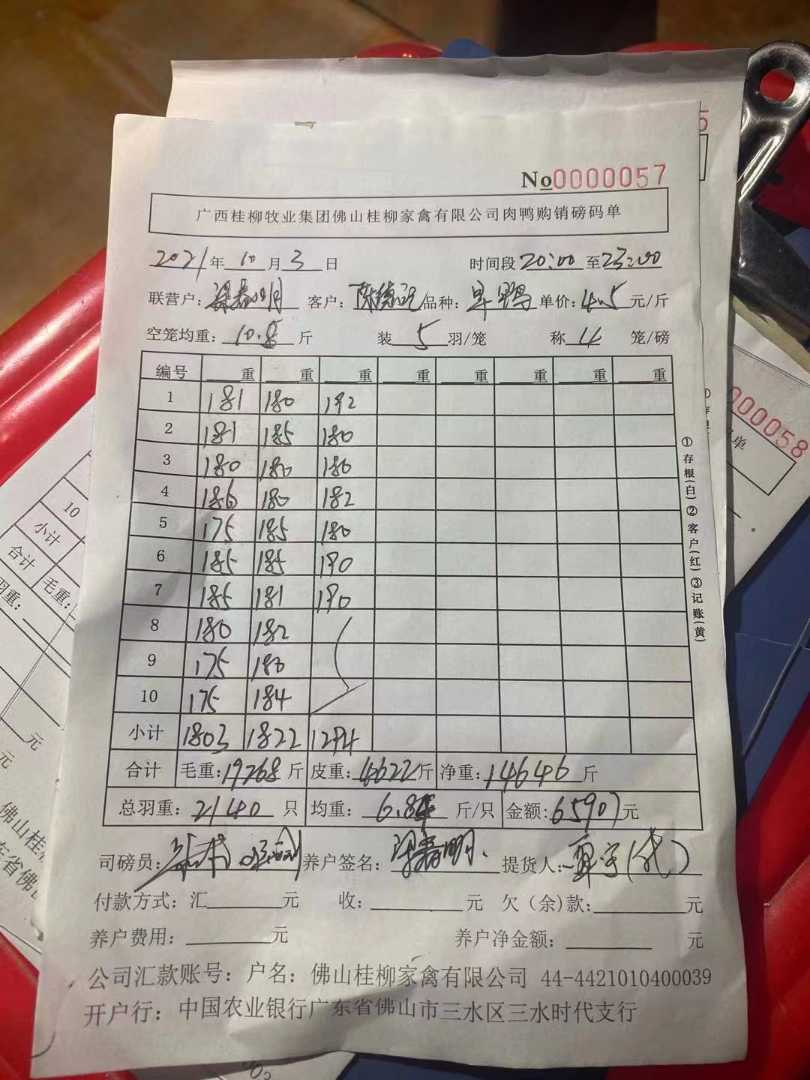 No0000057
广西桂柳牧业集团佛山桂柳家禽有限公司肉鸭购销磅码单
2021年10月3日 时间段20:00至23:00
联营户: 客户: 品种: 单价:4.5元/斤
空笼均重:10.8斤 装5羽/笼 称4笼/磅
编号 重 重 重 重 重 重 重 重
1 181 180 192
2 181 185 180
3 180 180 180
4 186 180 182
5 175 185 180
6 185 185 190
7 185 181 190
8 180 182
9 175 180
10 175 184
小计 1803 1822 1294
合计 毛重:19268斤 皮重:4622斤 净重:14646斤
总羽重:2140只 均重:6.84斤/只 金额:65907元
司磅员: 养户签名: 提货人:
付款方式:汇 元 收: 元 欠(余)款: 元
养户费用: 元 养户净金额: 元
公司汇款账号:户名:佛山桂柳家禽有限公司 44-4421010400039
开户行:中国农业银行广东省佛山市三水区三水时代支行
①存根(白)②客户(红)③记账(黄)
000058
单
10
小计
合计 毛重:
羽重:
元
元
佛山桂
东省佛